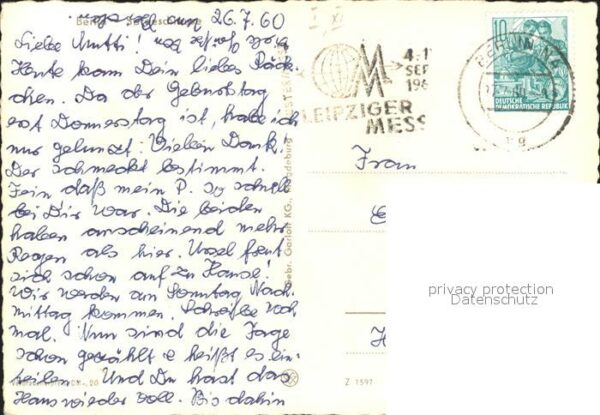 26.7.60
Liebe Mutti!
Heute kam Dein liebes Päck-
chen. Da der Geburtstag
erst Donnerstag ist, habe ich
nur gelunzt. Vielen Dank!
Der schmeckt bestimmt.
Fein daß mein P. so schnell
bei Dir war. Die beiden
haben anscheinend mehr
Regen als hier. Ursel freut
sich schon auf zu Hause!
Wir werden am Sonntag Nach-
mittag kommen. Schreibe noch
mal. Nun sind die Tage
schon gezählt e heißt es ein-
teilen. Und Du hast das
Haus wieder voll. Bis dahin
LEIPZIGER
MESS
4.
SEP
196
10
DEUTSCHE
DEMOKRATISCHE REPUBLIK
BERLIN
Gebr. Garloff KG., Magdeburg
Frau
Z 1597
privacy protection
Datenschutz